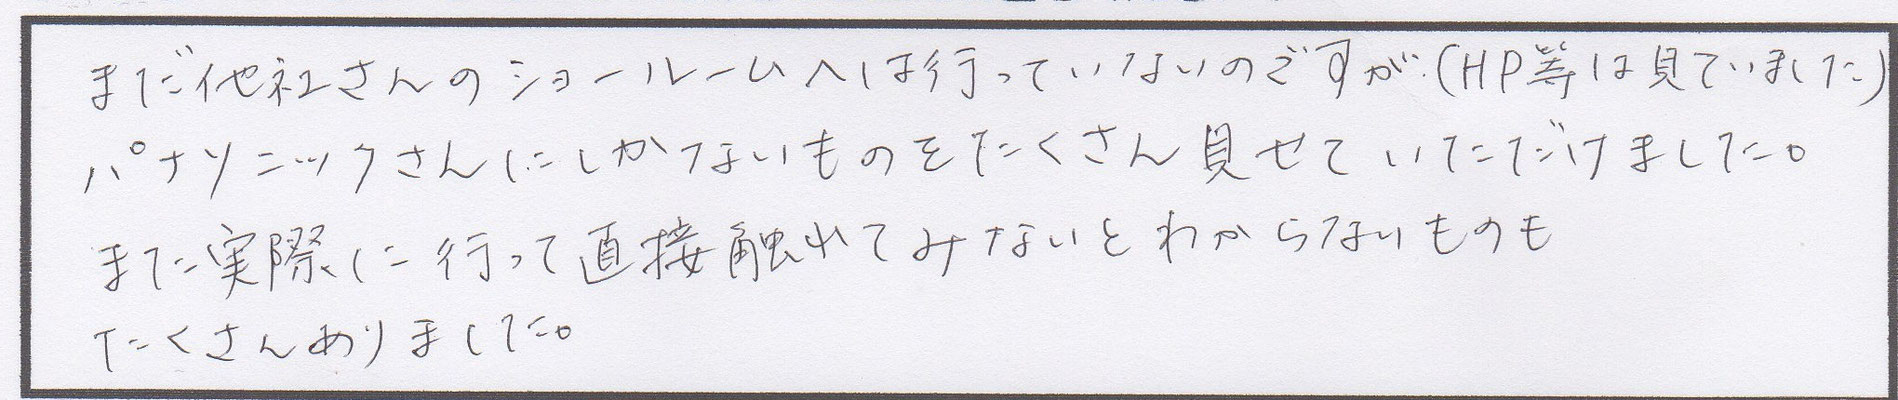 まだ他社さんのショールームへは行っていないのですが(HP等は見ていました)
パナソニックさんにしかないものをたくさん見せていただけました。
また実際に行って直接触れてみないとわからないものも
たくさんありました。